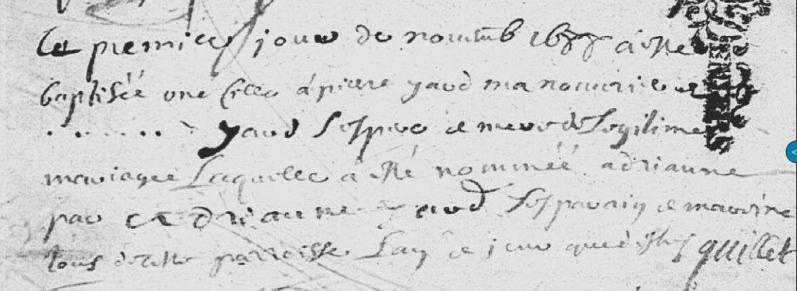 Le premier jour de novemb 1688 a este
baptisée une fille à pierre yavd manouvrier
. . . . . . . yavd Ses pere et mere de Legitime
mariage Laquelle a esté nominée adrianne
par et adrianne yavd Ses parain et maraine
tous de cette parroisse Lan et jour que dessus quillet